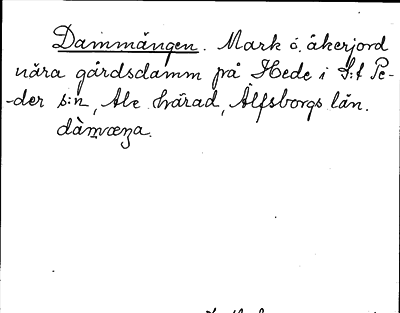 Dammängen. Mark o. åkerjord
nära gårdsdamm på Hede i S:t Pe-
-der s:n, Ale härad, Älfsborgs län.